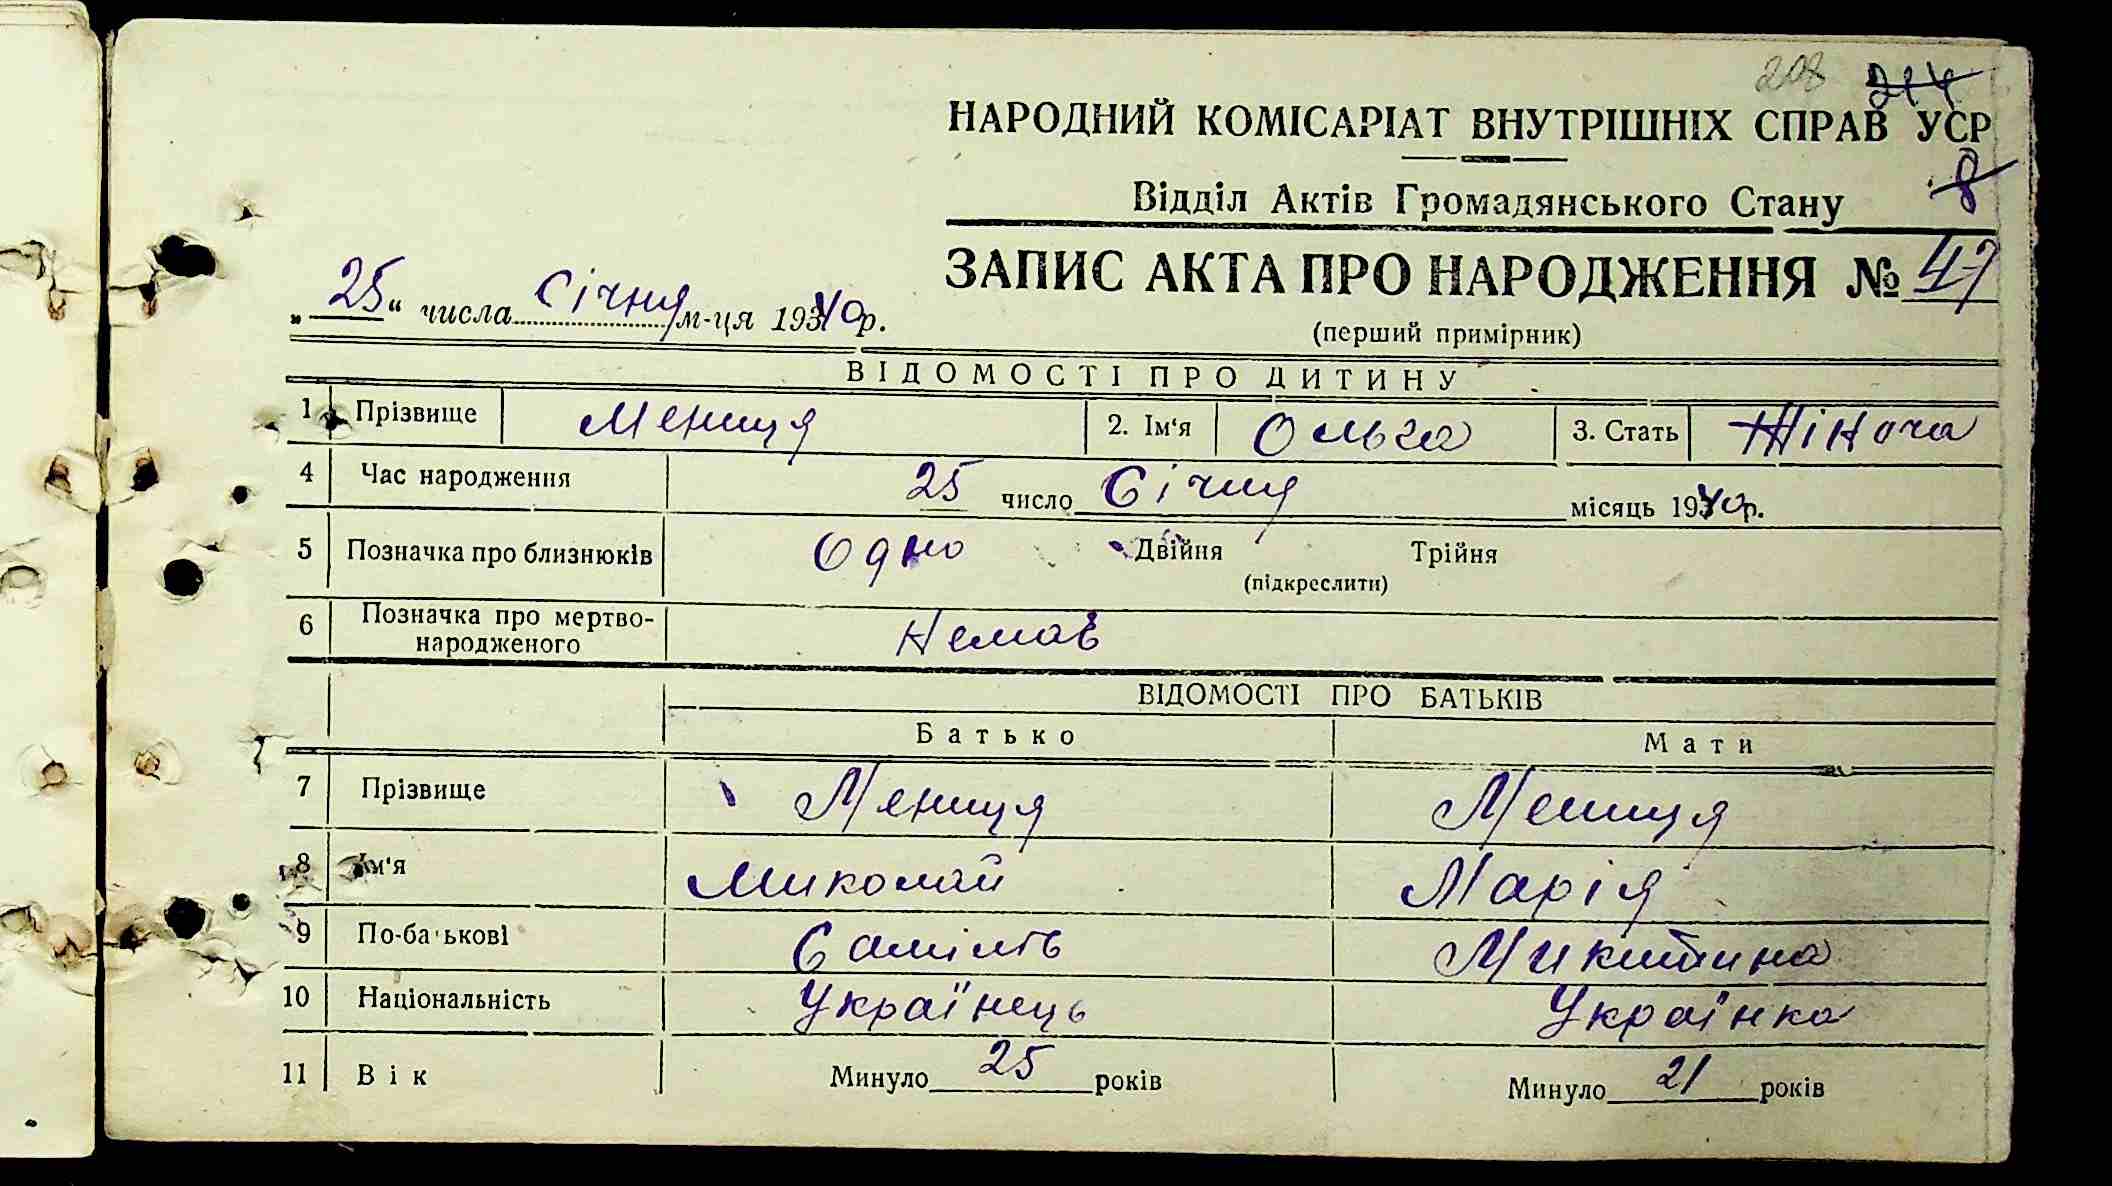 208 244
НАРОДНИЙ КОМІСАРІАТ ВНУТРІШНІХ СПРАВ УСР
8
Відділ Актів Громадянського Стану
ЗАПИС АКТА ПРО НАРОДЖЕННЯ № 47
„25“ числа Січня м-ця 1940 р.
(перший примірник)
ВІДОМОСТІ ПРО ДИТИНУ
1 Прізвище Мениця 2. Ім‘я Ольга 3. Стать Жіноча
4 Час народження 25 число Січня місяць 1940 р.
5 Позначка про близнюків Одно Двійня Трійня
(підкреслити)
6 Позначка про мертво-
народженого Немає
ВІДОМОСТІ ПРО БАТЬКІВ
Батько Мати
7 Прізвище Мениця Мениця
8 Ім‘я Миколай Марія
9 По-батькові Микитина
10 Національність Українець Українка
11 Вік Минуло 25 років Минуло 21 років